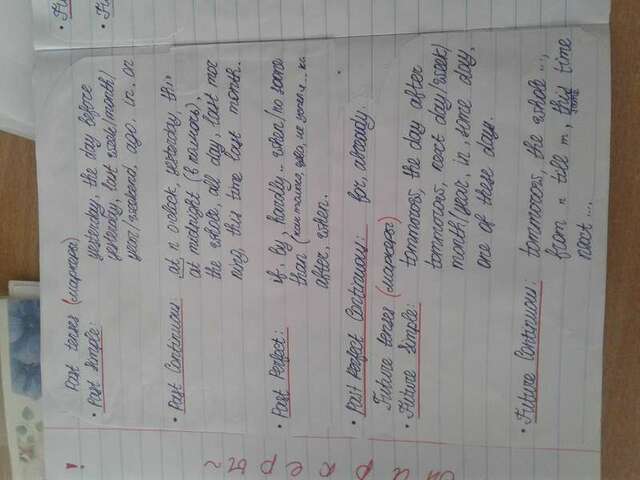 Past tenses (маркеры)
• Past Simple: yesterday, the day before
yesterday, last week/month/
year/weekend, ago, in, on
• Past Continuous at n o'clock, yesterday, this
at midnight (в полночь),
the whole, all day, last mor
ning, this time last month.
• Past Perfect: if, by, hardly.. when/no soone
than (как только, едва, не успел я...
after, when.
• Past Perfect Continuous: for, already.
Future tenses (маркеры)
• Future Simple: tommorow, the day after
tommorow, next day/week/
month/year, in, some day,
one of these days.
• Future Continuous: tommorow, the whole ...,
from n till m, this time
same
next ...
! маркеры~
• Fu
• Fu